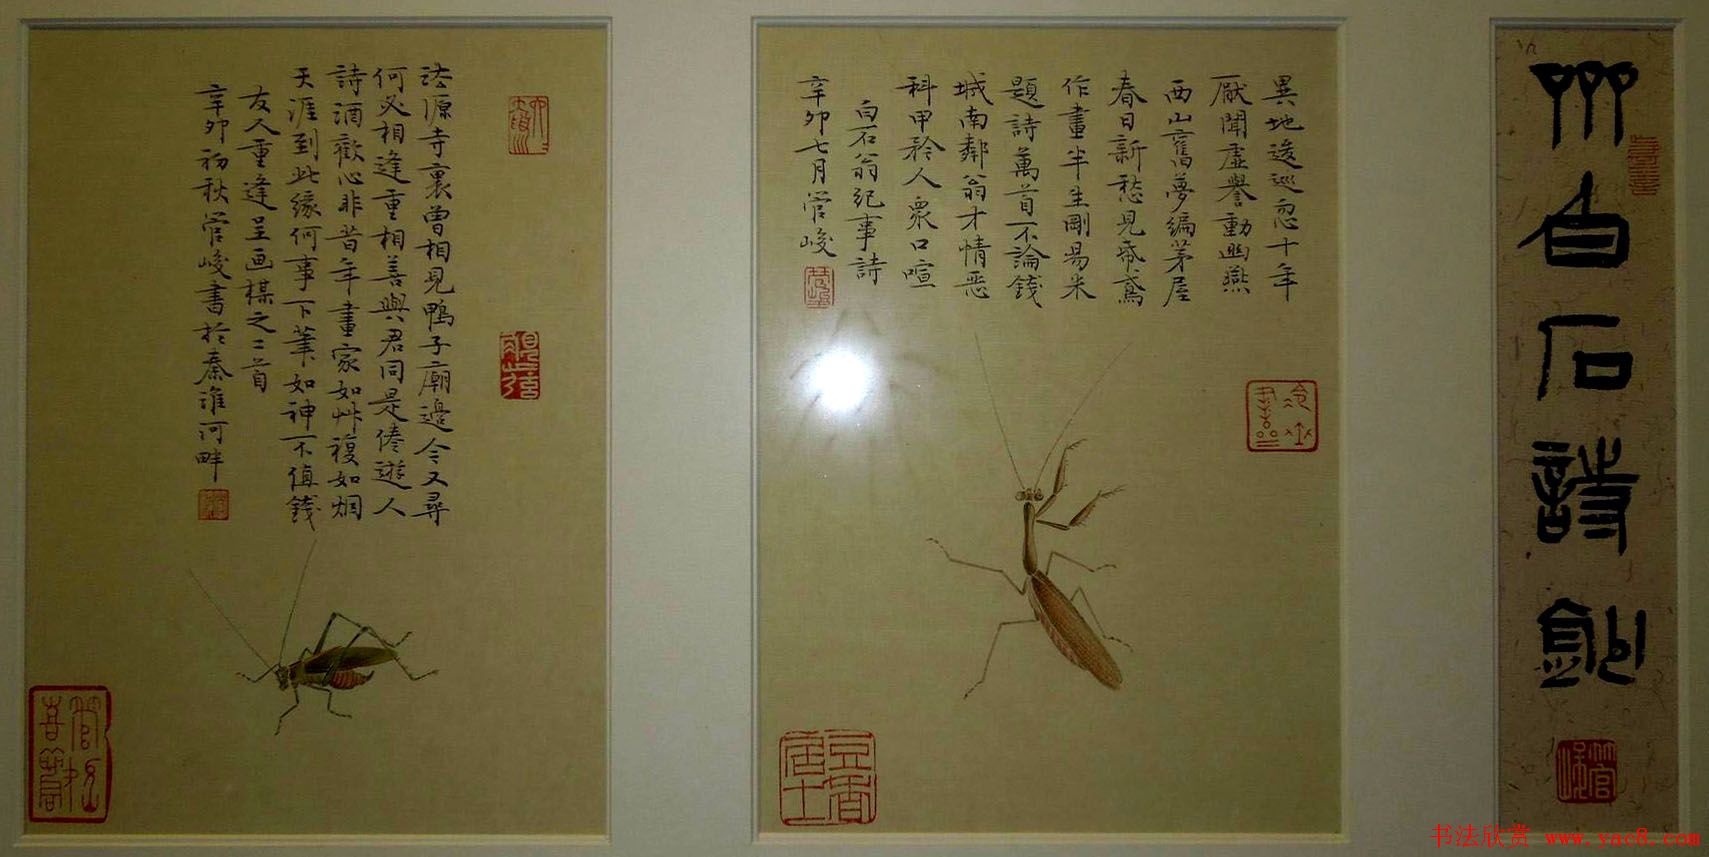 齊白石詩鈔
異地逡巡忽十年
厭聞虛譽動幽燕
西山舊夢編茅屋
春日新愁見帋鳶
作畫半生剛易米
題詩萬首不論錢
城南鄰翁才情惡
科甲矜人衆口喧
白石翁紀事詩
辛卯七月管峻
法源寺裏曾相見鴨子廟邊今又尋
何必相逢重相善與君同是倦遊人
詩酒歡心非昔年畫家如艸複如烟
天涯到此緣何事下筆如神不值錢
友人重逢呈画棋之二首
辛卯初秋管峻書於秦淮河畔
管峻
豆香居士
书法欣赏 www.yac8.com